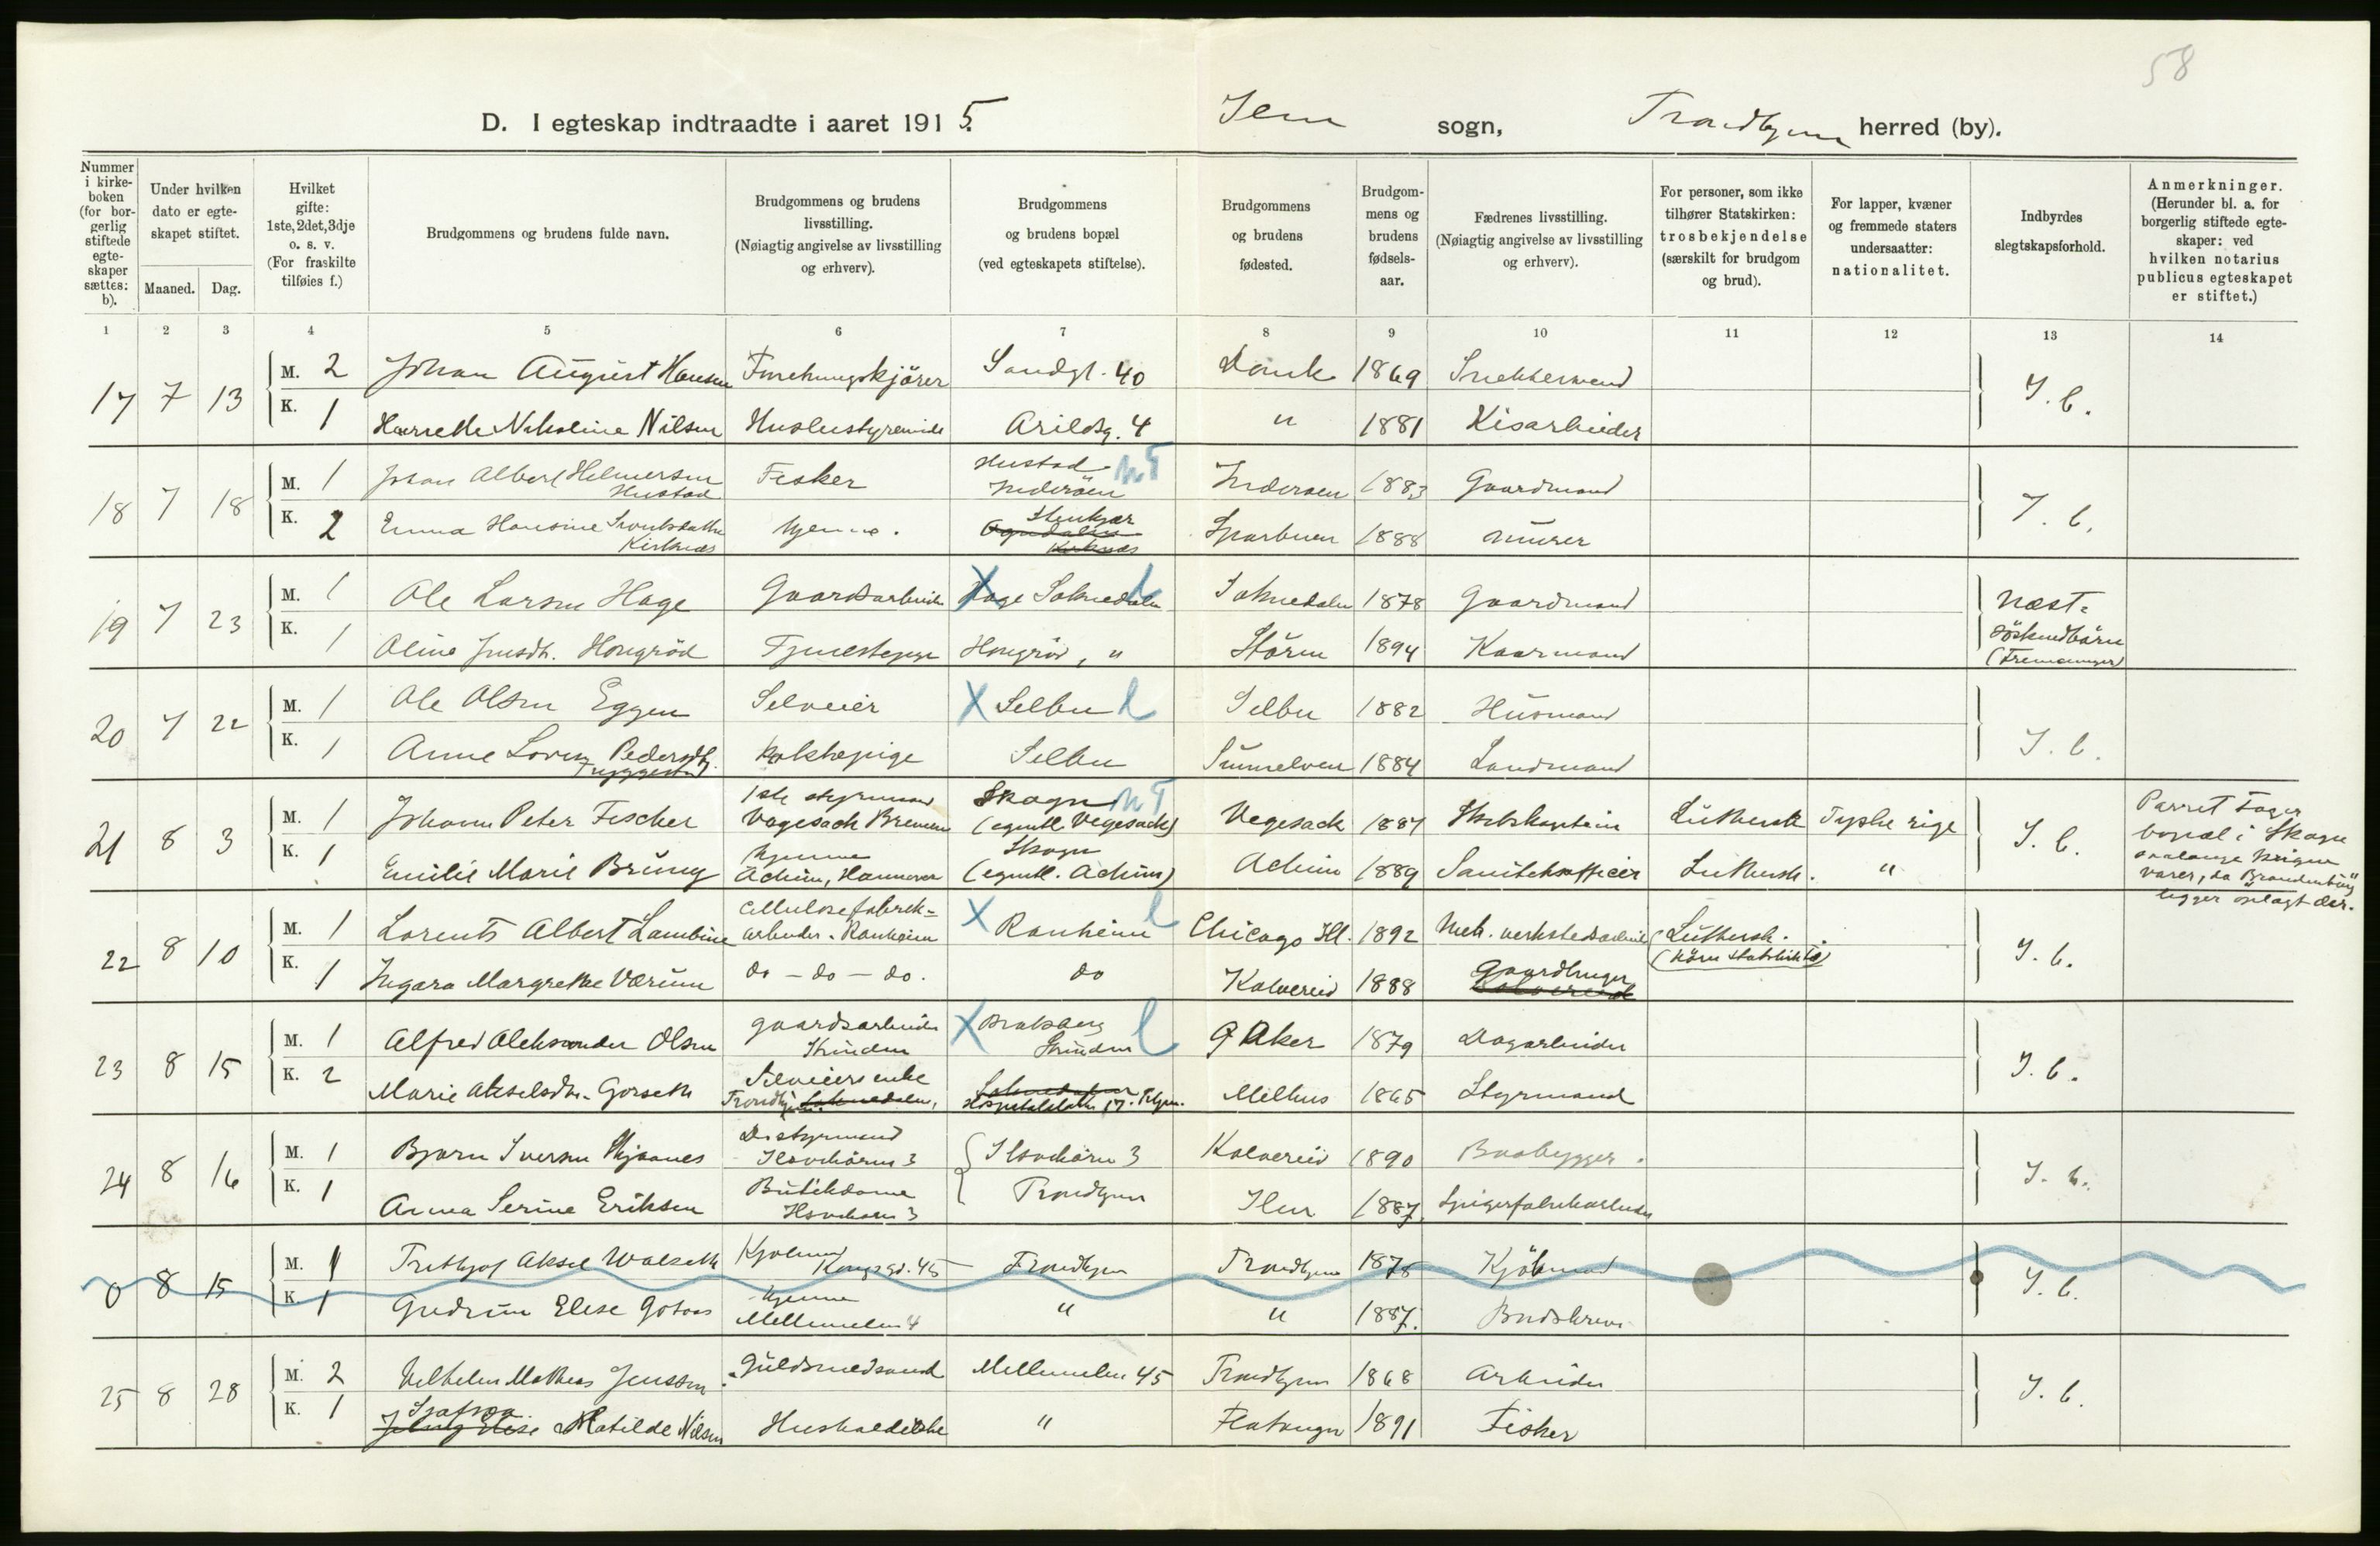 58
D. I egteskap indtraadte i aaret 1915. Ilen sogn, Trondhjem herred (by).
Nummer i kirke-boken (for bor-gerlig stiftede egte-skaper sættes: b).
Under hvilken dato er egte-skapet stiftet.
Maaned. Dag.
Hvilket gifte: 1ste, 2det, 3dje o. s. v. (For fraskilte tilføies f.)
Brudgommens og brudens fulde navn.
Brudgommens og brudens livsstilling. (Nøiagtig angivelse av livsstilling og erhverv).
Brudgommens og brudens bopæl (ved egteskapets stiftelse).
Brudgommens og brudens fødested.
Brudgom-mens og brudens fødsels-aar.
Fædrenes livsstilling. (Nøiagtig angivelse av livsstilling og erhverv).
For personer, som ikke tilhører Statskirken: trosbekjendelse (særskilt for brudgom og brud).
For lapper, kvæner og fremmede staters undersaatter: nationalitet.
Indbyrdes slegtskapsforhold.
Anmerkninger. (Herunder bl. a. for borgerlig stiftede egte-skaper: ved hvilken notarius publicus egteskapet er stiftet.)
1 2 3 4 5 6 7 8 9 10 11 12 13 14
17 7 13 M. 2 Johan August Hansen Sandgt. 40 1869 I. b.
K. 1 Nikoline Nilsen Husbestyrerinde Arildsg. 4 " 1881 Kisarbeider
18 7 18 M. 1 Johan Albert Helmersen Hustad Fisker Hustad Inderöen NT Inderøen 1883 Gaardmand I. b.
K. 2 Emma Hansine Kirknæs hjemme. Stenkjær Ogndalen Kirknæs Sparbuen 1888 murer
19 7 23 M. 1 Ole Larsen Hage Gaardsarbeider X Hage Soknedalen Soknedalen 1878 Gaardmand Næst-söskendbörn (Tremenninger)
K. 1 Oline Jensdt. Hongröd Tjenestepige Hongröd, " Stören 1894 Kaarmand
20 7 22 M. 1 Ole Olsen Eggen Selveier X Selbu Selbu 1882 Husmand I. b.
K. 1 Anne Lovise Pedersdt. Tryggestad kokkepige Selbu Sunnelven 1884 Landmand
21 8 3 M. 1 Johann Peter Fischer 1ste styrmand Vegesack Bremen Skogn NT (egentl. Vegesack) Vegesack 1887 Skibskaptein Luthersk Tyske rige I. b. Parret tager bopæl i Skogn saalænge krigen varer, da "Brandenburg" ligger oplagt der.
K. 1 Emilie Marie Brüng hjemme Achim, Hannover Skogn (egentl. Achim) Achim 1889 Sanitetsofficer Luthersk. "
22 8 10 M. 1 Lorents Albert Lambine Cellulosefabrik-arbeider. Ranheim X Ranheim Chicago Ill. 1892 Mek. verkstedsarbeider Luthersk. I. b.
K. 1 Ingara Margrethe Værum do - do - do. do Kolvereid 1888 Gaardbruger
23 8 15 M. 1 Alfred Aleksander Olsen gaardsarbeider Strinden X Bratsberg Strinden Aker 1879 Dagarbeider I. b.
K. 2 Marie Akselsdtr. Gorseth Selveiers enke Trondhjem. Soknedalen, Soknedalen Melhus 1865 Styrmand
24 8 16 M. 1 Bjarne Iversen Ilsvikören 3 Ilsvikören 3 Kolvereid 1890 Baabygger. I. b.
K. 1 Anna Serine Eriksen Butikdame Ilsvikören 3 Trondhjem Ilen 1887. Spigerfabrikarbeider
0 8 15 M. 1 Frithjof Aksel Walseth Kjøbmand Kongsgt. 45 Trondhjem Trondhjem 1878 Kjöbmand I. b.
K. 1 Gudrun Elise Gotaas hjemme Mellemilen 4 " " 1887.
25 8 28 M. 2 Vilhelm Mathias Jenssen Guldsmedsvend Mellemilen 45 Trondhjem 1868 Arbeider I. b.
K. 1 Matilde Nilsen " Flatanger 1891 Fisker